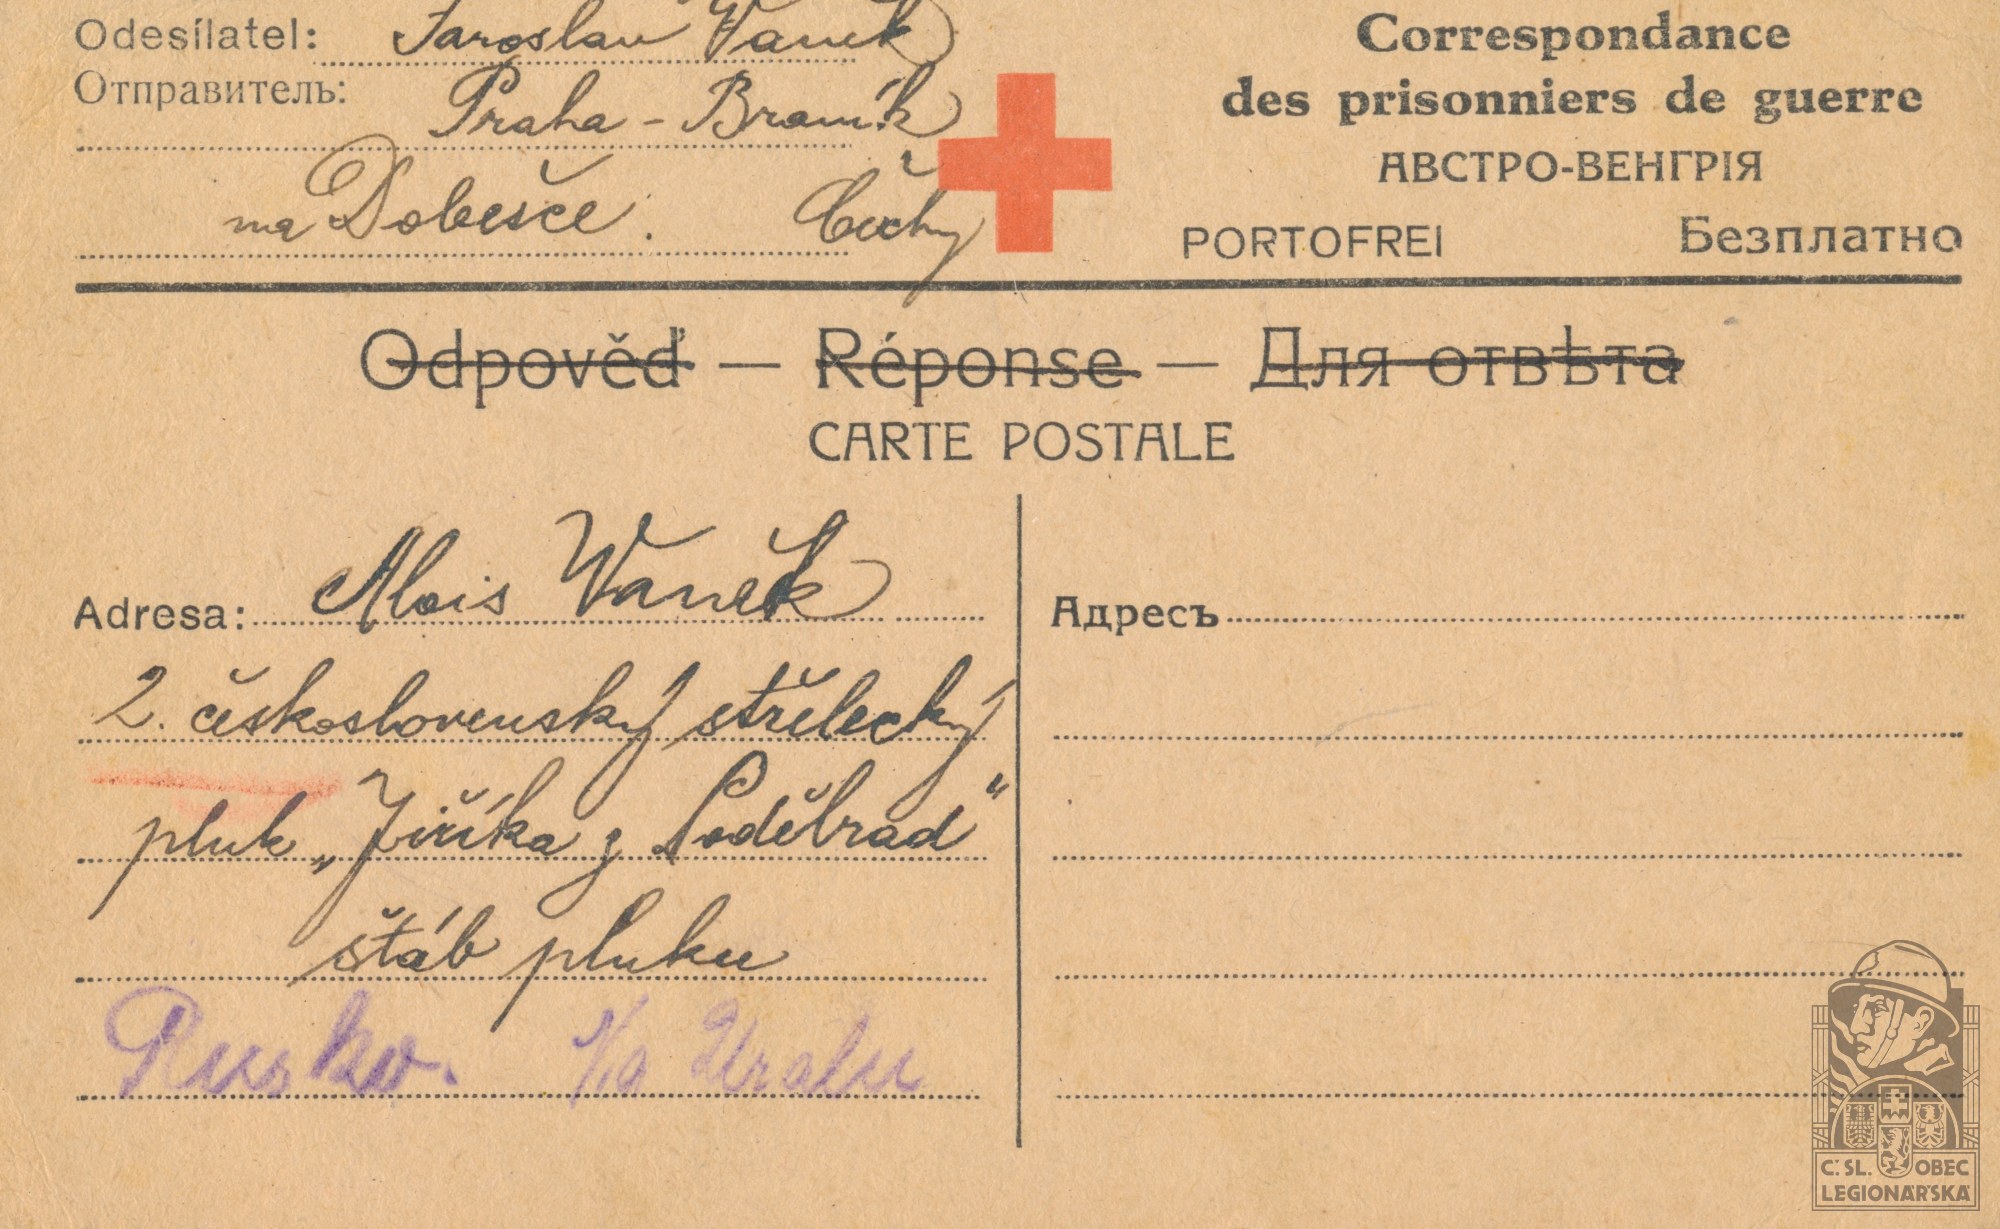 Odesílatel: Jaroslav Vaněk
Отправитель: Praha - Braník
na Dobešce. Čechy
Correspondance
des prisonniers de guerre
АВСТРО-ВЕНГРІЯ
PORTOFREI Безплатно
Odpověď — Réponse — Для отвѣта
CARTE POSTALE
Adresa: Alois Vaněk
2. československý střelecký
pluk „Jiříka z Poděbrad“
štáb pluku
Rusko. Na Uralu
Адресъ
Č. SL. OBEC
LEGIONÁŘSKÁ